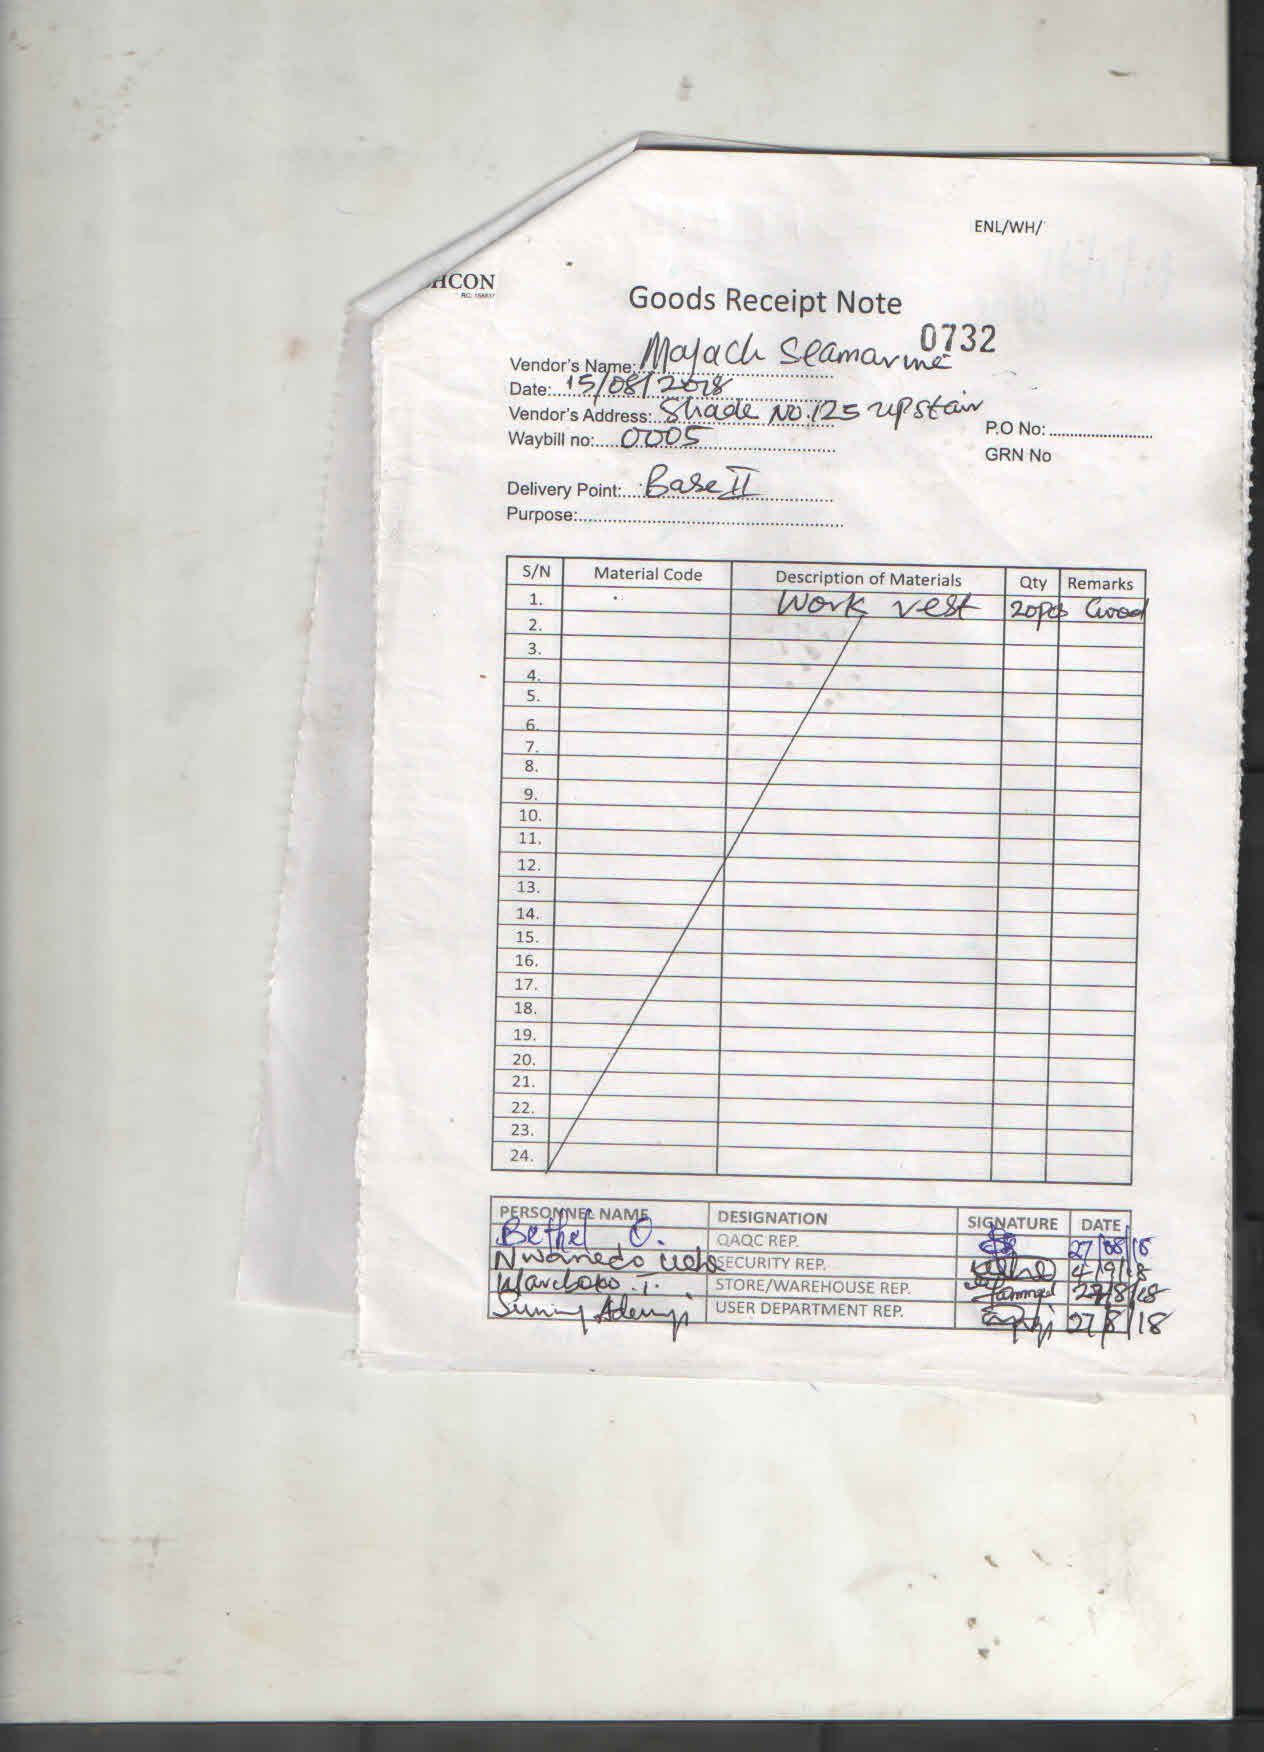 ENL/WH/
HCON
RC. 158837
Goods Receipt Note
0732
Vendor's Name: Majach Seamarine
Date: 15/08/2018
Vendor's Address: Shade No. 125 upstair
P.O No:
Waybill no: 0005
GRN No
Delivery Point: Base II
Purpose:
S/N Material Code Description of Materials Qty Remarks
1. Work vest 20pcs Good
2.
3.
4.
5.
6.
7.
8.
9.
10.
11.
12.
13.
14.
15.
16.
17.
18.
19.
20.
21.
22.
23.
24.
PERSONNEL NAME DESIGNATION SIGNATURE DATE
Bethel O. QAQC REP. 27/08/18
Nwanedo SECURITY REP. 4/9/18
T. STORE/WAREHOUSE REP. 27/8/18
Sunny Adeniyi USER DEPARTMENT REP. 27/8/18